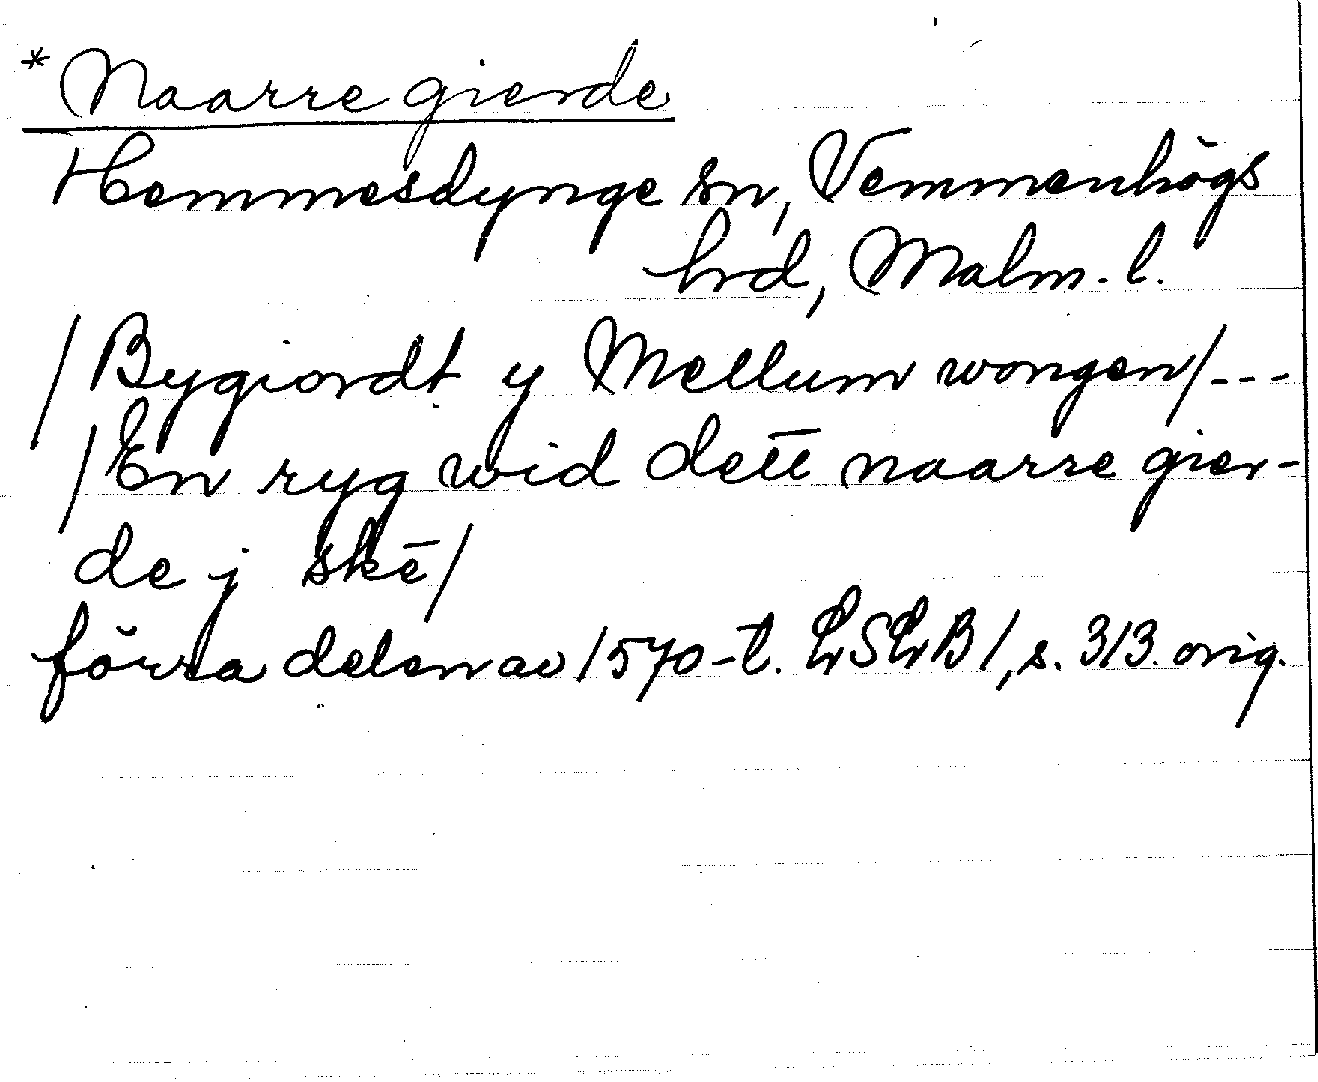 * Naarre gierde
Hemmesdynge sn, Vemmenhögs
hrd, Malm. l.
/Bygiordt y Mellum wongen/---
/En ryg wid dett naarre gier-
de j skē/
förra delen av 1570-t. LSLB 1, s. 313. orig.